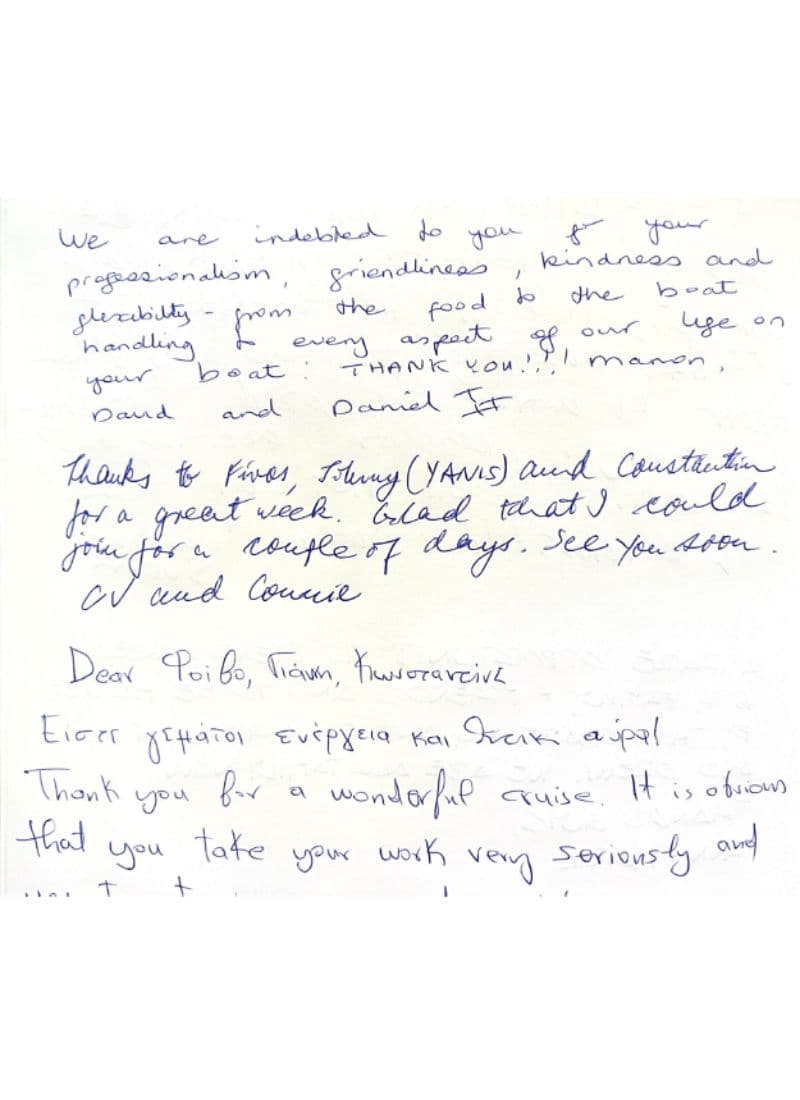 We are indebted to you for your
professionalism, friendliness, kindness and
flexibility - from the food to the boat
handling to every aspect of our life on
your boat: THANK YOU!!! Manon,
David and Daniel II
Thanks to Fivos, Johnny (YANIS) and Constantin
for a great week. Glad that I could
join for a couple of days. See you soon.
CV and Connie
Dear Φοίβο, Γιάννη, Κωνσταντίνε
Είστε γεμάτοι ενέργεια και θετική αύρα!
Thank you for a wonderful cruise. It is obvious
that you take your work very seriously and